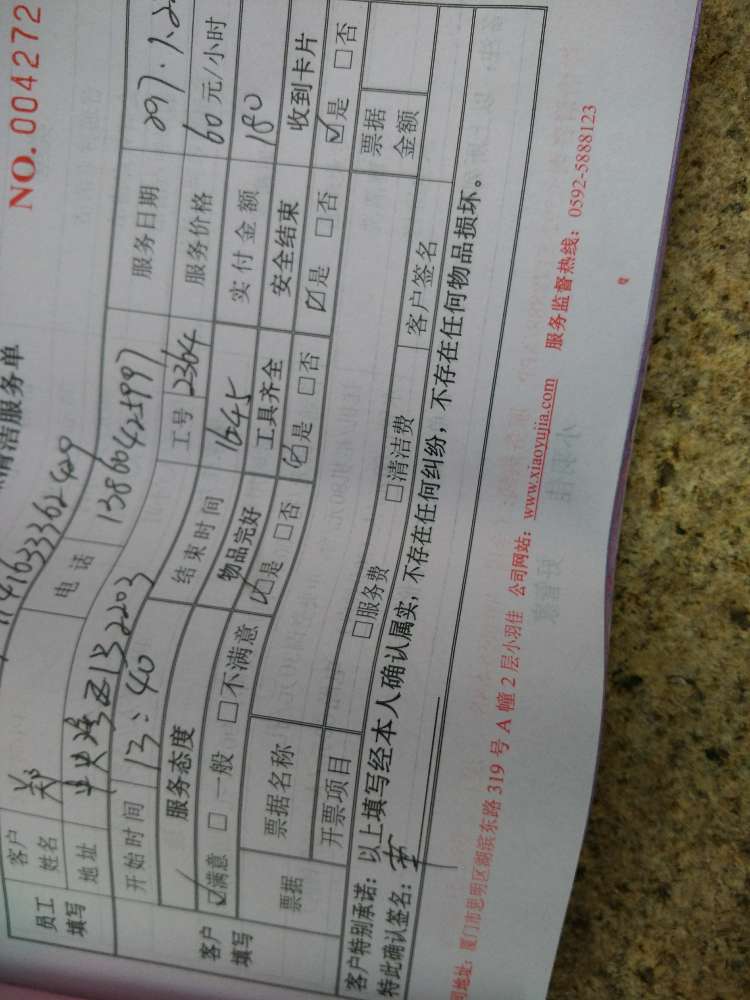 NO.004272
清洁服务单
员工填写 客户姓名 郑 电话 13860425997 服务日期
地址 中央湾区132203 工号 2364 服务价格 60元/小时
开始时间 13:40 结束时间 1645 实付金额 180
客户填写 服务态度 物品完好 工具齐全 安全结束 收到卡片
☑满意 □一般 □不满意 ☑是 □否 ☑是 □否 ☑是 □否 ☑是 □否
票据 票据名称 票据金额
开票项目 □服务费 □清洁费 客户签名
客户特别承诺：以上填写经本人确认属实，不存在任何纠纷，不存在任何物品损坏。
特此确认签名：
司地址：厦门市思明区湖滨东路 319 号 A 幢 2 层小羽佳 公司网站：www.xiaoyujia.com 服务监督热线：0592-5888123